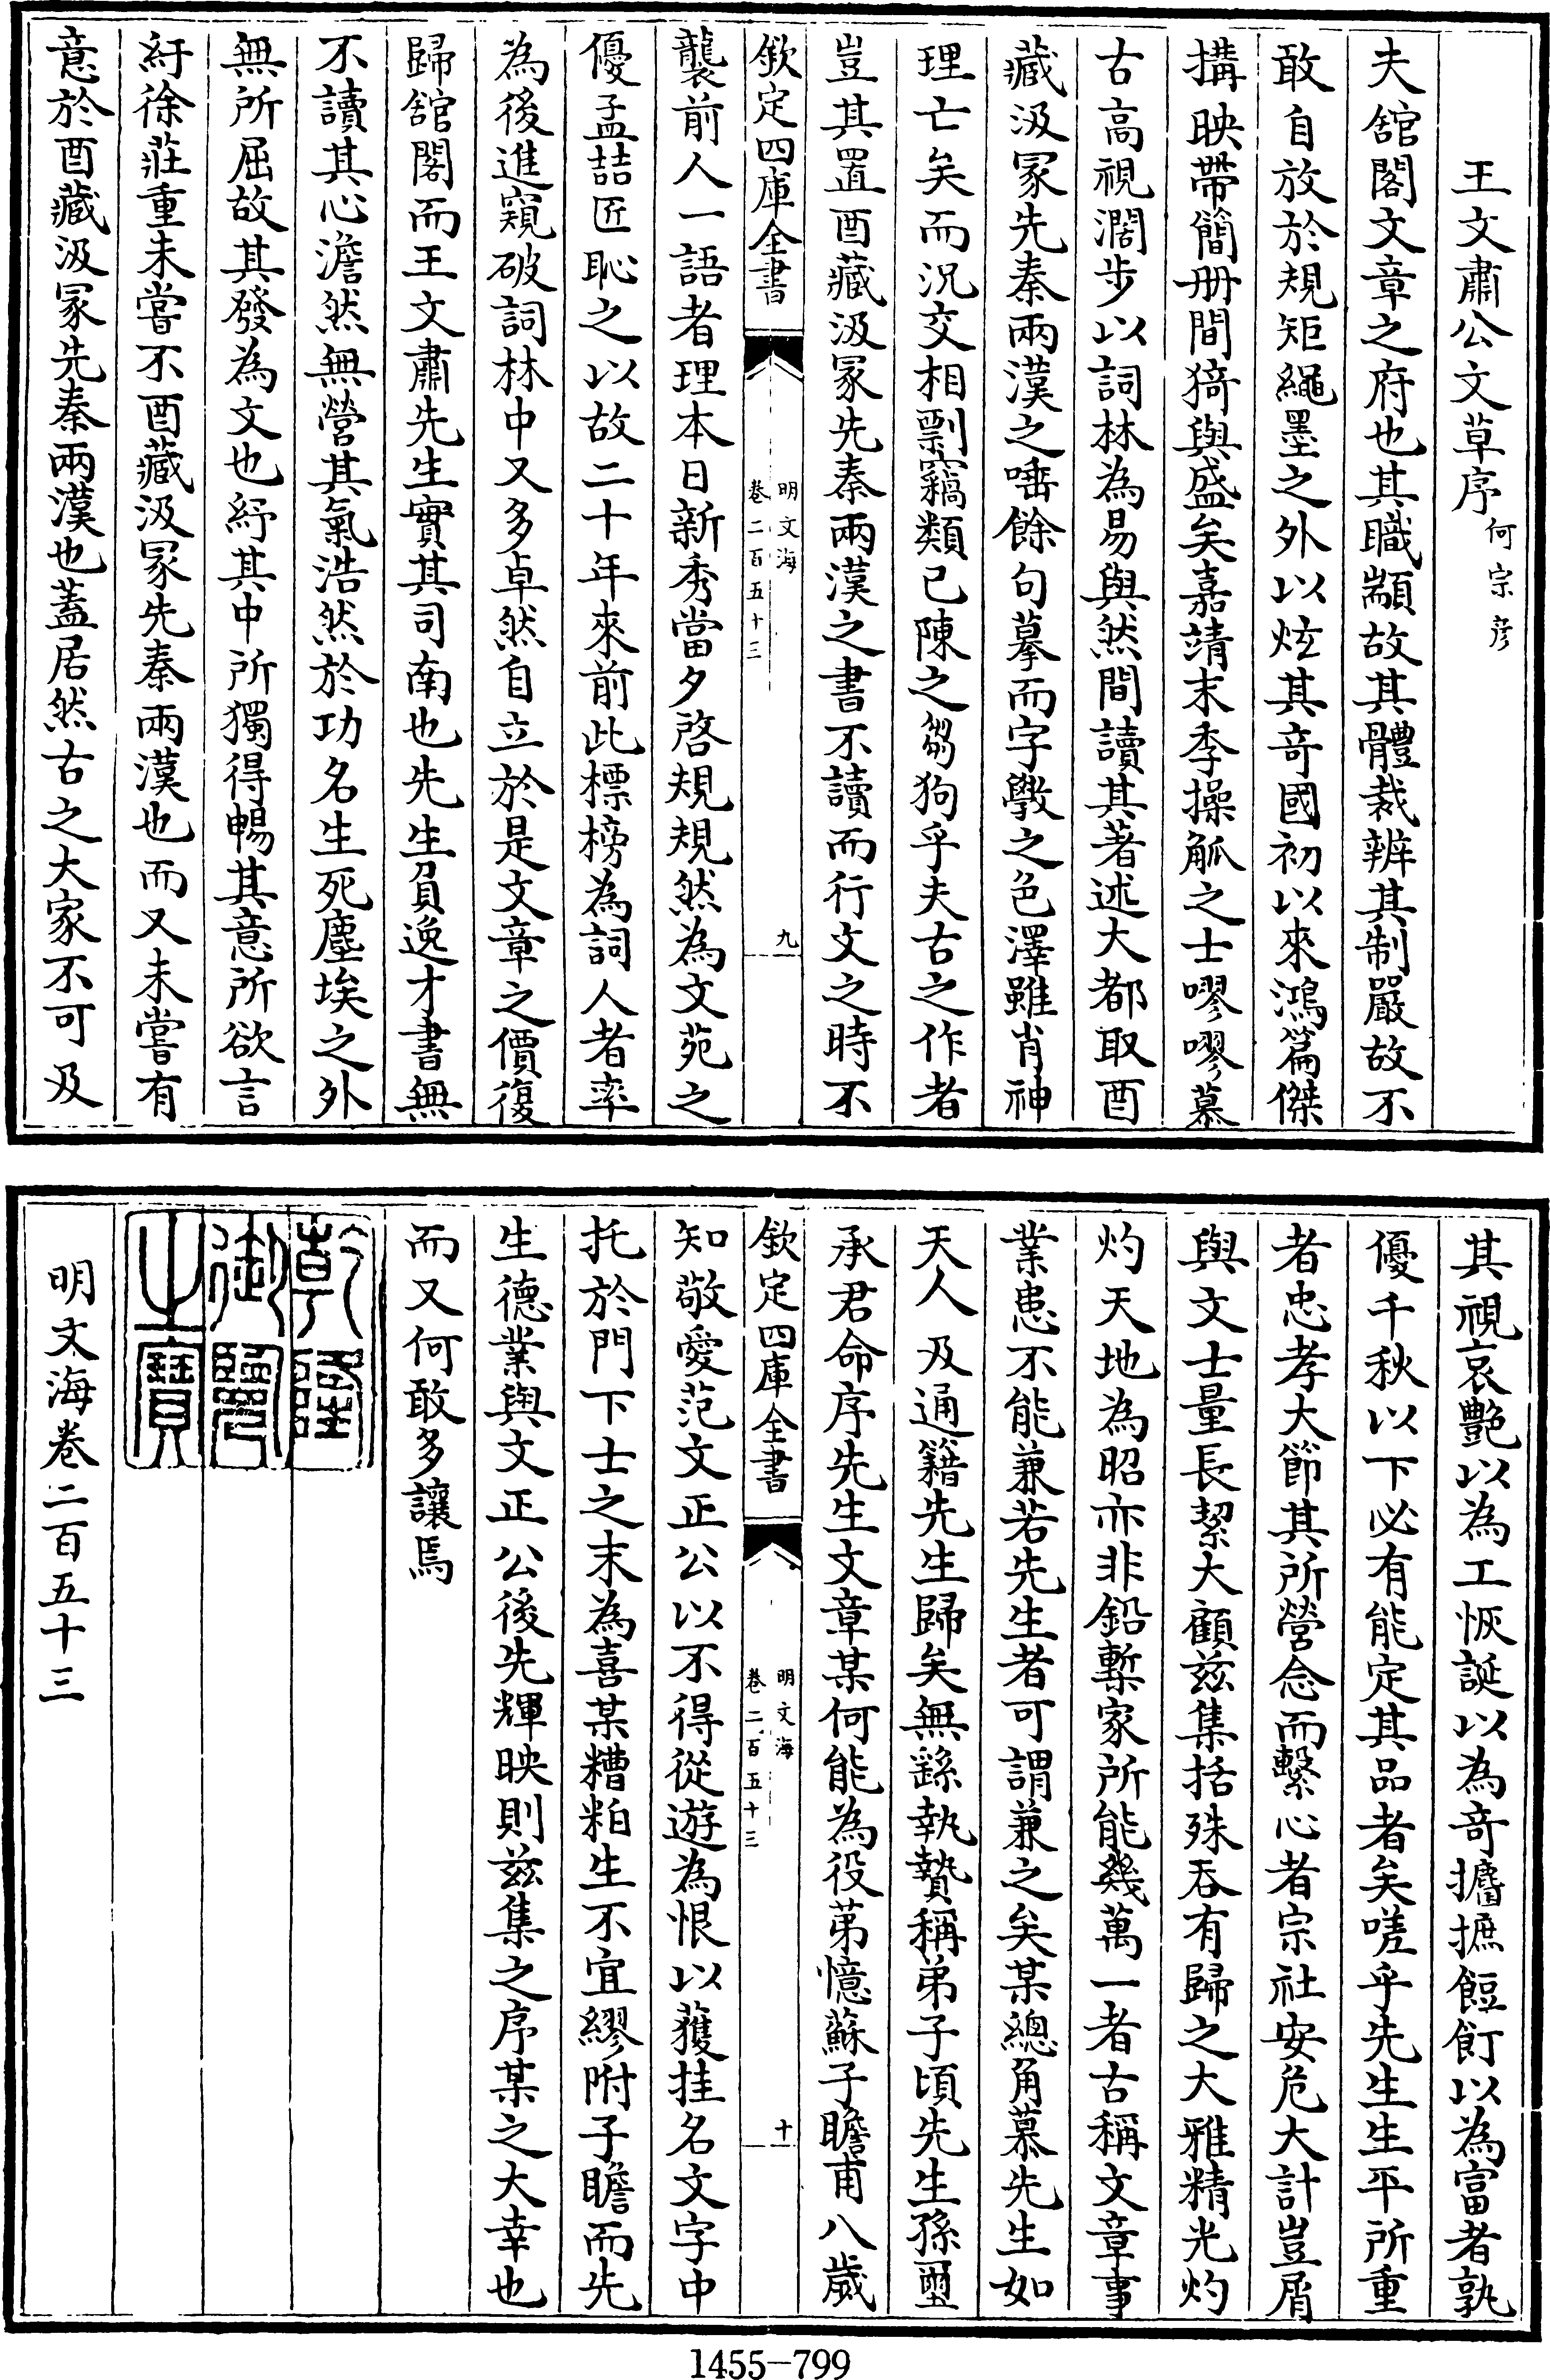 王文肅公文草序何宗彦
夫舘閣文章之府也其職顓故其體裁辨其制嚴故不
敢自放於規矩繩墨之外以炫其竒國初以來鴻篇傑
搆映帶簡册間猗與盛矣嘉靖末季操觚之士嘐嘐慕
古高視濶步以詞林為易與然間讀其著述大都取酉
藏汲冡先秦兩漢之唾餘句摹而字斆之色澤雖肖神
理亡矣而況交相剽竊類已陳之芻狗乎夫古之作者
豈其置酉藏汲冡先秦兩漢之書不讀而行文之時不
欽定四庫全書
明文海
卷二百五十三
九
襲前人一語者理本日新秀當夕啓規規然為文苑之
優孟喆匠恥之以故二十年來前此標榜為詞人者率
為後進窺破詞林中又多卓然自立於是文章之價復
歸舘閣而王文肅先生實其司南也先生負逸才書無
不讀其心澹然無營其氣浩然於功名生死塵埃之外
無所屈故其發為文也紓其中所獨得暢其意所欲言
紆徐莊重未嘗不酉藏汲冡先秦兩漢也而又未嘗有
意於酉藏汲冡先秦兩漢也蓋居然古之大家不可及
其視哀艷以為工恢誕以為竒攟摭餖飣以為富者孰
優千秋以下必有能定其品者矣嗟乎先生生平所重
者忠孝大節其所營念而繫心者宗社安危大計豈屑
與文士量長絜大顧兹集括殊吞有歸之大雅精光灼
灼天地為昭亦非鉛槧家所能幾萬一者古稱文章事
業患不能兼若先生者可謂兼之矣某總角慕先生如
天人及通籍先生歸矣無繇執贄稱弟子頃先生孫璽
承君命序先生文章某何能為役苐憶蘇子瞻甫八歲
欽定四庫全書
明文海
卷二百五十三
十
知敬愛范文正公以不得從遊為恨以獲挂名文字中
托於門下士之末為喜某糟粕生不宜繆附子瞻而先
生德業與文正公後先輝映則兹集之序某之大幸也
而又何敢多讓焉
乾隆
御覽
之寶
明文海卷二百五十三
1455-799